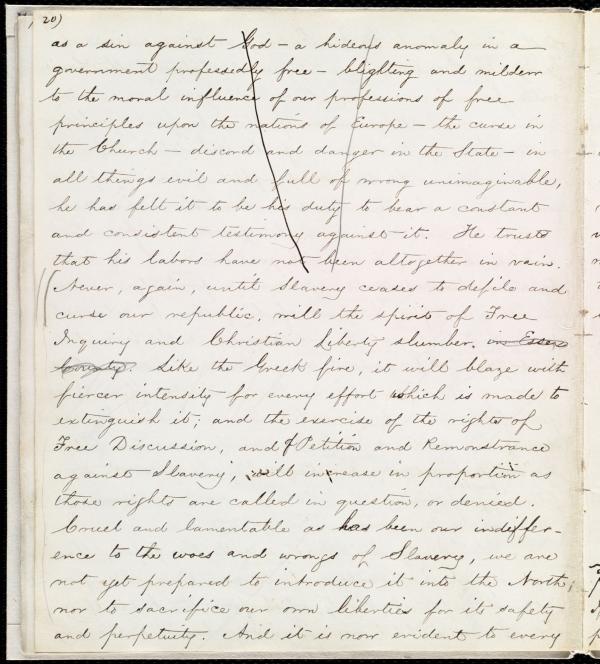 20)
as a sin against God – a hideous anomaly in a
government professedly free – blighting and mildew
to the moral influence of our professions of free
principles upon the nations of Europe – the curse in
the Church – discord and danger in the State – in
all things evil and full of wrong unimaginable,
he has felt it to be his duty to bear a constant
and consistent testimony against it. He trusts
that his labors have not been altogether in vain.
Never, again, until Slavery ceases to defile and
curse our republic, will the spirit of Free
Inquiry and Christian Liberty slumber. in Essex
County. Like the Greek fire, it will blaze with
fiercer intensity for every effort which is made to
extinguish it; and the exercise of the rights of
Free Discussion, and of Petition and Remonstrance
against Slavery, will increase in proportion as
those rights are called in question, or denied.
Cruel and lamentable as has been our indiffer-
ence to the woes and wrongs of Slavery, we are
not yet prepared to introduce it into the North,
nor to sacrifice our own liberties for its safety
and perpetuity. And it is now evident to every